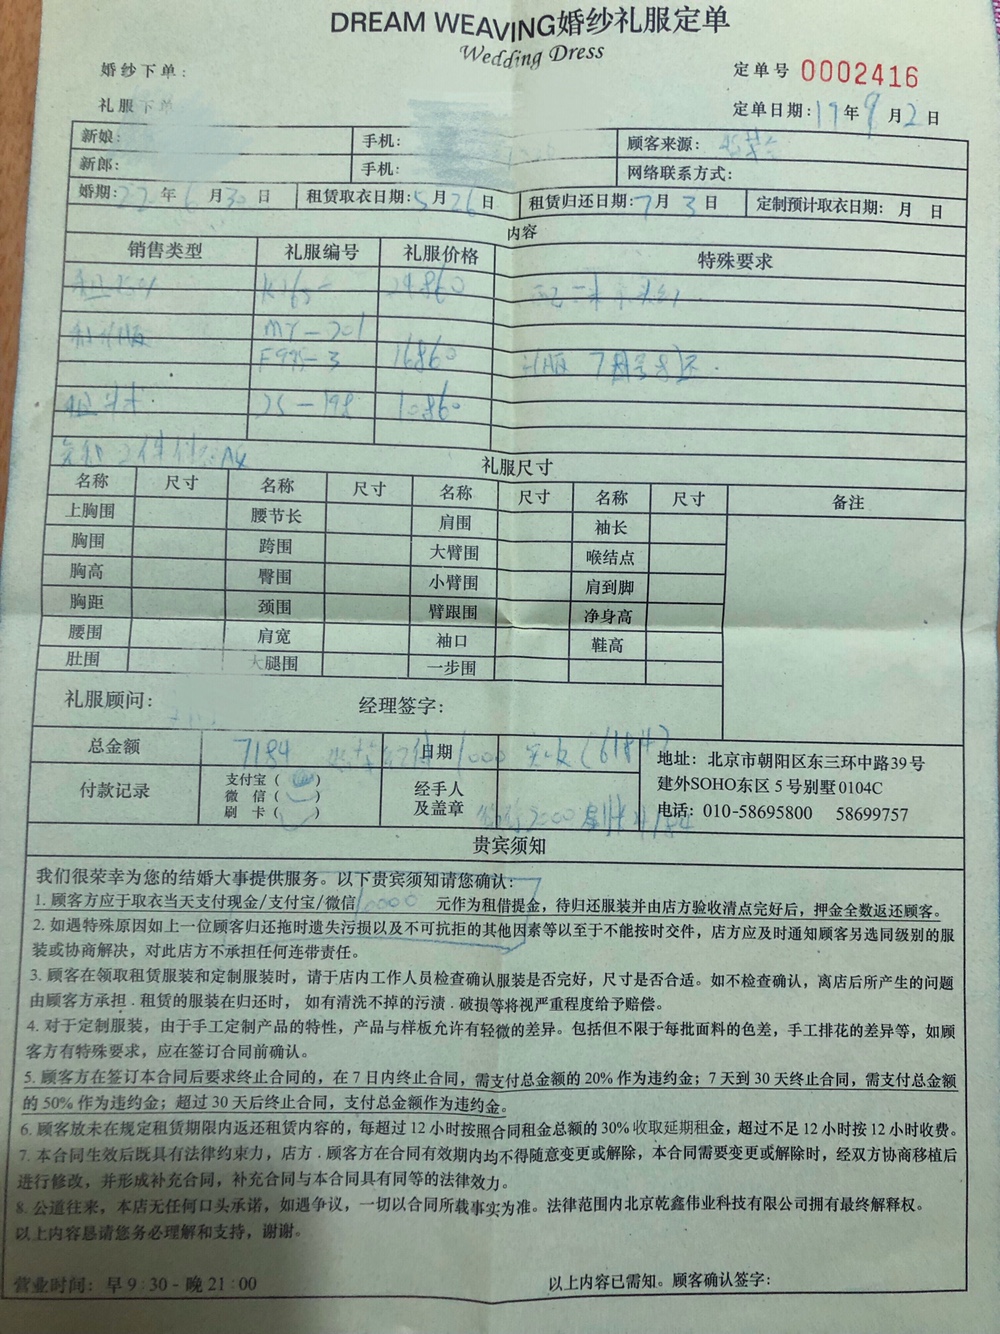 DREAM WEAVING婚纱礼服定单
Wedding Dress
婚纱下单:
定单号 0002416
礼服下单
定单日期: 19年9月2日
新娘: 手机: 顾客来源:
新郎: 手机: 网络联系方式:
婚期: 22年6月30日 租赁取衣日期: 5月26日 租赁归还日期: 7月3日 定制预计取衣日期: 月 日
内容
销售类型 礼服编号 礼服价格 特殊要求
24860
MY-201
F995-3 16860
25-198 10860
礼服尺寸
名称 尺寸 名称 尺寸 名称 尺寸 名称 尺寸 备注
上胸围 腰节长 肩围 袖长
胸围 跨围 大臂围 喉结点
胸高 臀围 小臂围 肩到脚
胸距 颈围 臂跟围 净身高
腰围 肩宽 袖口 鞋高
肚围 大腿围 一步围
礼服顾问: 经理签字:
总金额 7184 日期 1000 (6184)
付款记录 支付宝( ) 微信( ) 刷卡( ) 经手人及盖章
地址: 北京市朝阳区东三环中路39号
建外SOHO东区5号别墅0104C
电话: 010-58695800 58699757
贵宾须知
我们很荣幸为您的结婚大事提供服务。以下贵宾须知请您确认:
1. 顾客方应于取衣当天支付现金/支付宝/微信 10000 元作为租借提金，待归还服装并由店方验收清点完好后，押金全数返还顾客。
2. 如遇特殊原因如上一位顾客归还拖时遗失污损以及不可抗拒的其他因素等以至于不能按时交件，店方应及时通知顾客另选同级别的服
装或协商解决，对此店方不承担任何连带责任。
3. 顾客在领取租赁服装和定制服装时，请于店内工作人员检查确认服装是否完好，尺寸是否合适。如不检查确认，离店后所产生的问题
由顾客方承担．租赁的服装在归还时， 如有清洗不掉的污渍．破损等将视严重程度给予赔偿。
4. 对于定制服装，由于手工定制产品的特性，产品与样板允许有轻微的差异。包括但不限于每批面料的色差，手工排花的差异等，如顾
客方有特殊要求，应在签订合同前确认。
5. 顾客方在签订本合同后要求终止合同的，在7日内终止合同，需支付总金额的20%作为违约金；7天到30天终止合同，需支付总金额
的50%作为违约金；超过30天后终止合同，支付总金额作为违约金。
6. 顾客放未在规定租赁期限内返还租赁内容的，每超过12小时按照合同租金总额的30%收取延期租金，超过不足12小时按12小时收费。
7. 本合同生效后既具有法律约束力，店方．顾客方在合同有效期内均不得随意变更或解除，本合同需要变更或解除时，经双方协商移植后
进行修改，并形成补充合同，补充合同与本合同具有同等的法律效力。
8. 公道往来，本店无任何口头承诺，如遇争议，一切以合同所载事实为准。法律范围内北京乾鑫伟业科技有限公司拥有最终解释权。
以上内容恳请您务必理解和支持，谢谢。
营业时间: 早9:30-晚21:00 以上内容已需知。顾客确认签字: